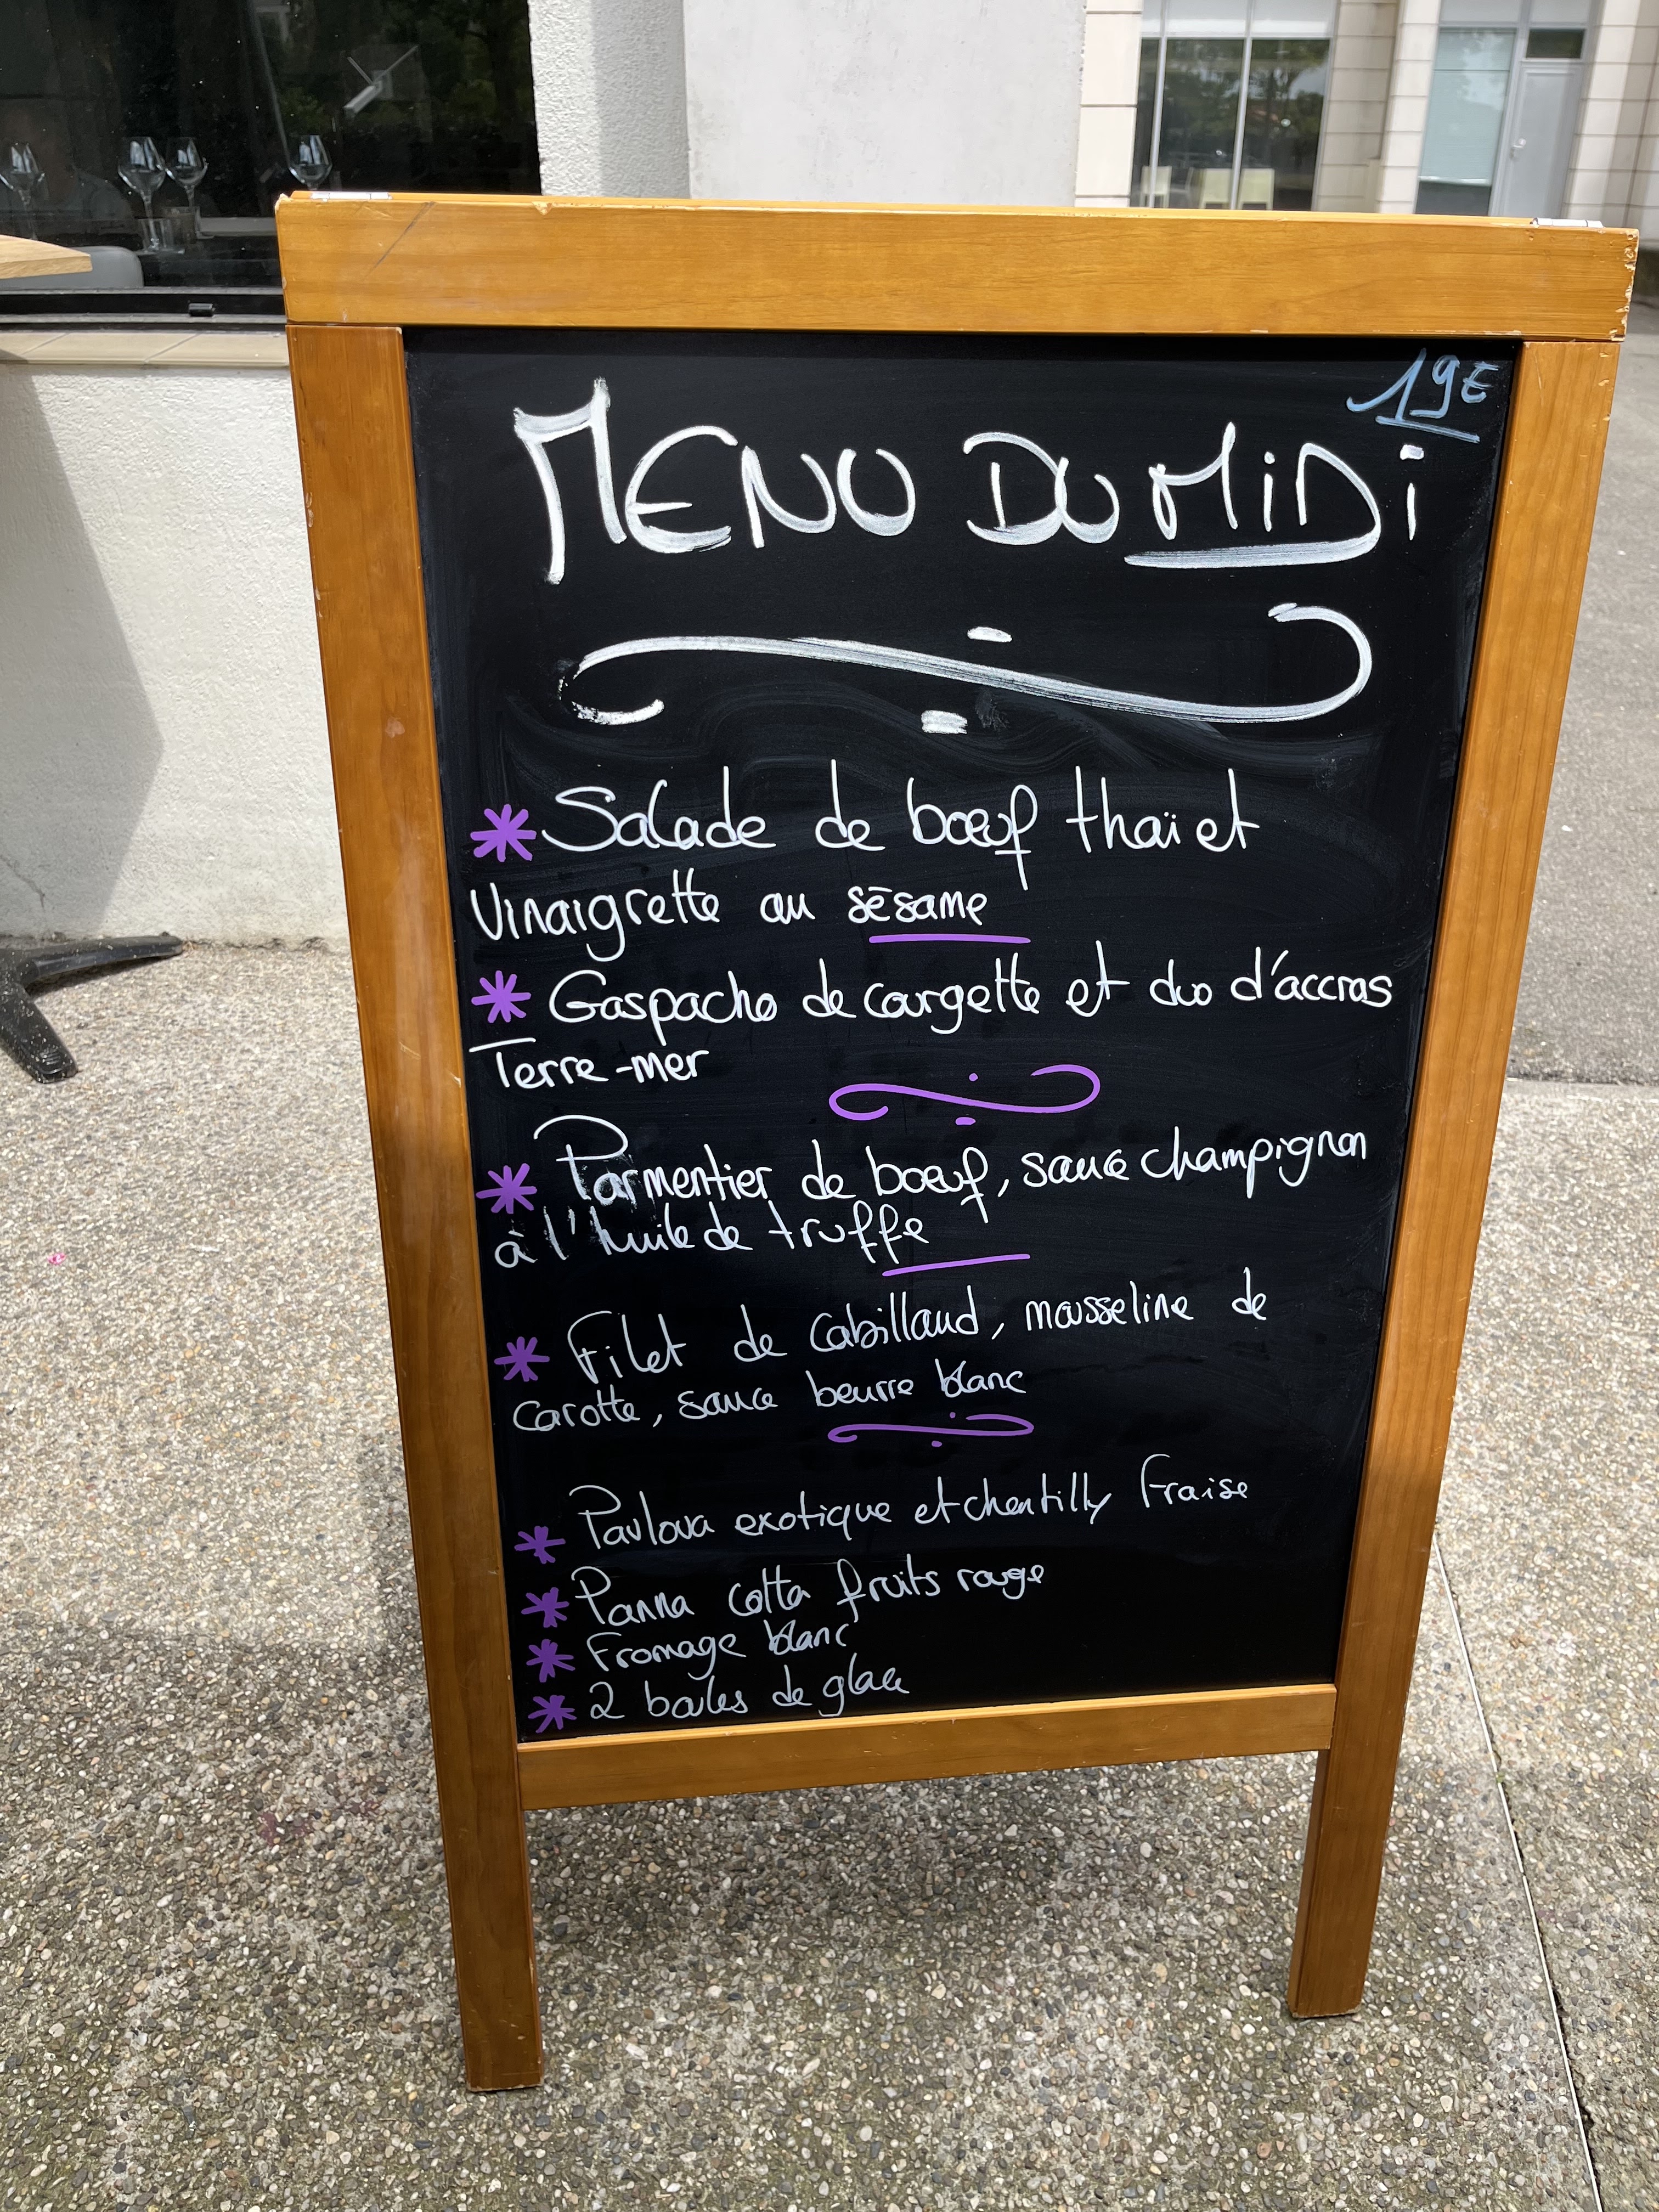 19€
MENU DU MiDi
Salade de bœuf thaï et
Vinaigrette au sésame
Gaspacho de courgette et duo d'accras
Terre-mer
Parmentier de bœuf, sauce champignon
à l'huile de truffe
Filet de Cabillaud, mousseline de
Carotte, sauce beurre blanc
Pavlova exotique et chentilly fraise
Panna cotta fruits rouge
Fromage blanc
2 boules de glace